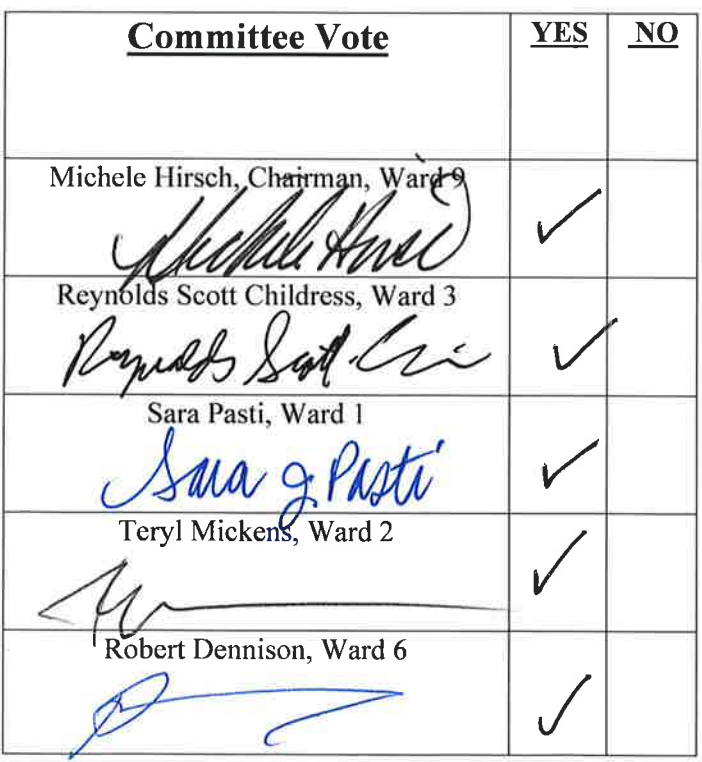 Committee Vote YES NO
Michele Hirsch, Chairman, Ward 9
Michele Hirsch
✓
Reynolds Scott Childress, Ward 3
Reynolds Scott-
✓
Sara Pasti, Ward 1
Sara J Pasti
✓
Teryl Mickens, Ward 2
✓
Robert Dennison, Ward 6
✓